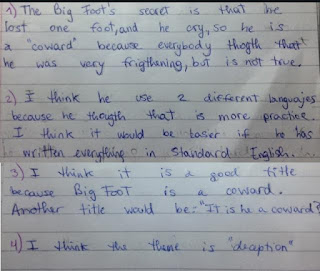 1) The Big Foot's secret is that he
lost one foot, and he cry, so he is
a "coward" because everybody thogth that
he was very frigthening, but is not true.
2) I think he use 2 different languajes
because he thougth that is more practice.
I think it would be easer if he has
written everything in Standard English.
3) I think it is a good title
because Big Foot is a coward.
Another title would be: "It is he a coward?
4) I think the theme is "deaption"